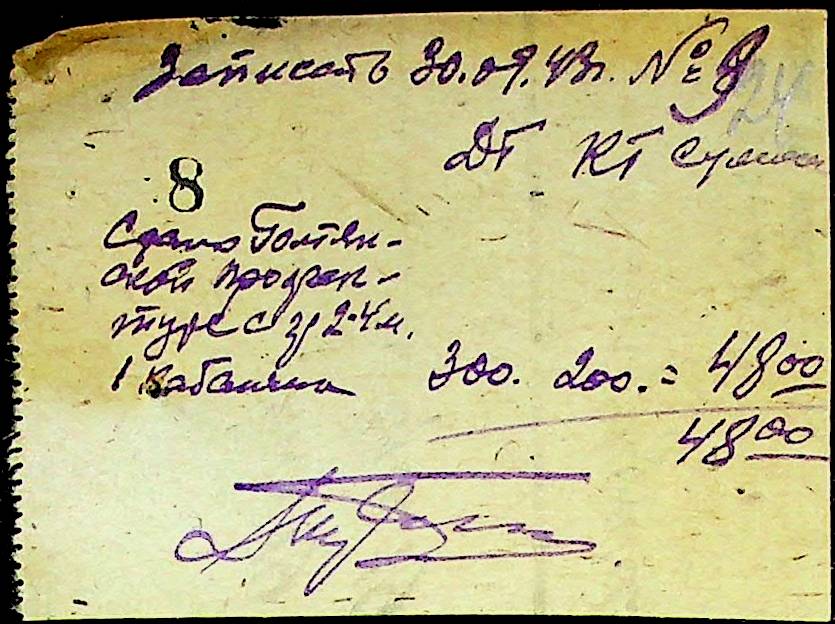 Записать 30.09.43г. № 9
24
Дт Кт сумма
8
Сдано Гольян-
ской прозек-
туре с з/ 2-4 м.
1 кабанчик 300. 200. = 48 00
48 00